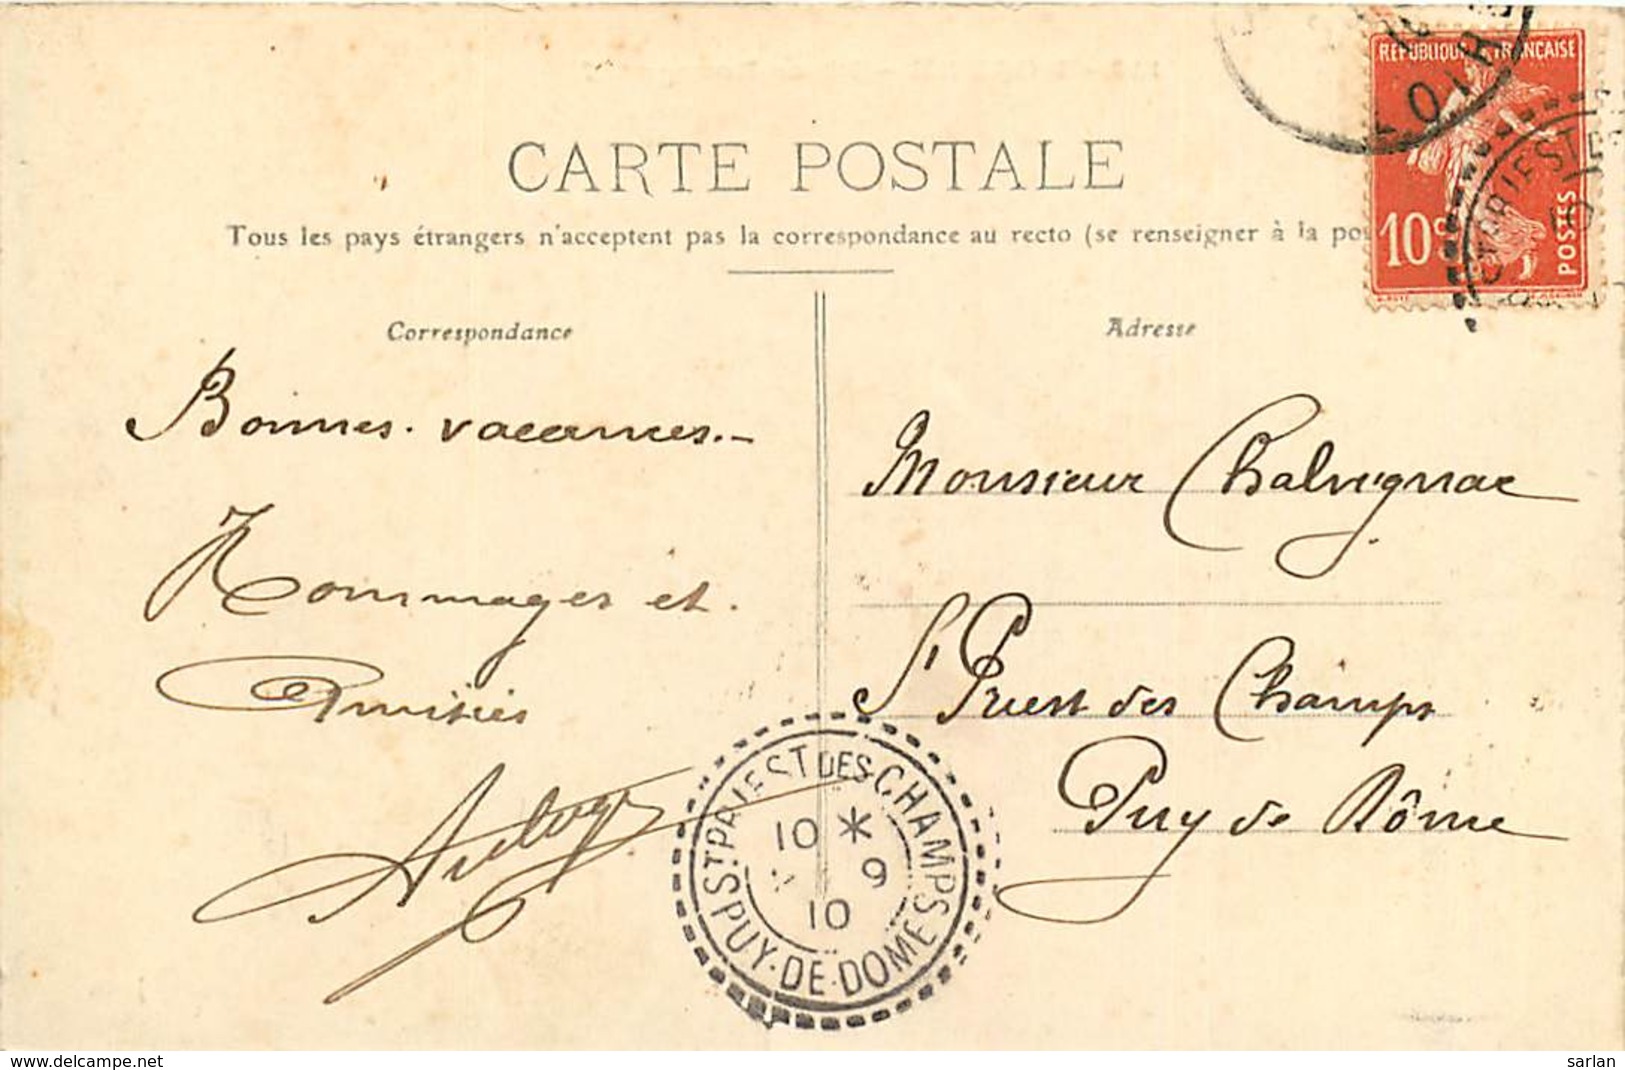 CARTE POSTALE
Tous les pays étrangers n'acceptent pas la correspondance au recto (se renseigner à la po
RÉPUBLIQUE FRANÇAISE
10 c
POSTES
Correspondance
Adresse
Bonnes vacances.-
Hommages et
Amitiés
Monsieur Chalvignac
St Priest des Champs
Puy de Dôme
ST PRIEST DES CHAMPS
10 * 9
10
PUY-DE-DOME
www.delcampe.net
sarlan